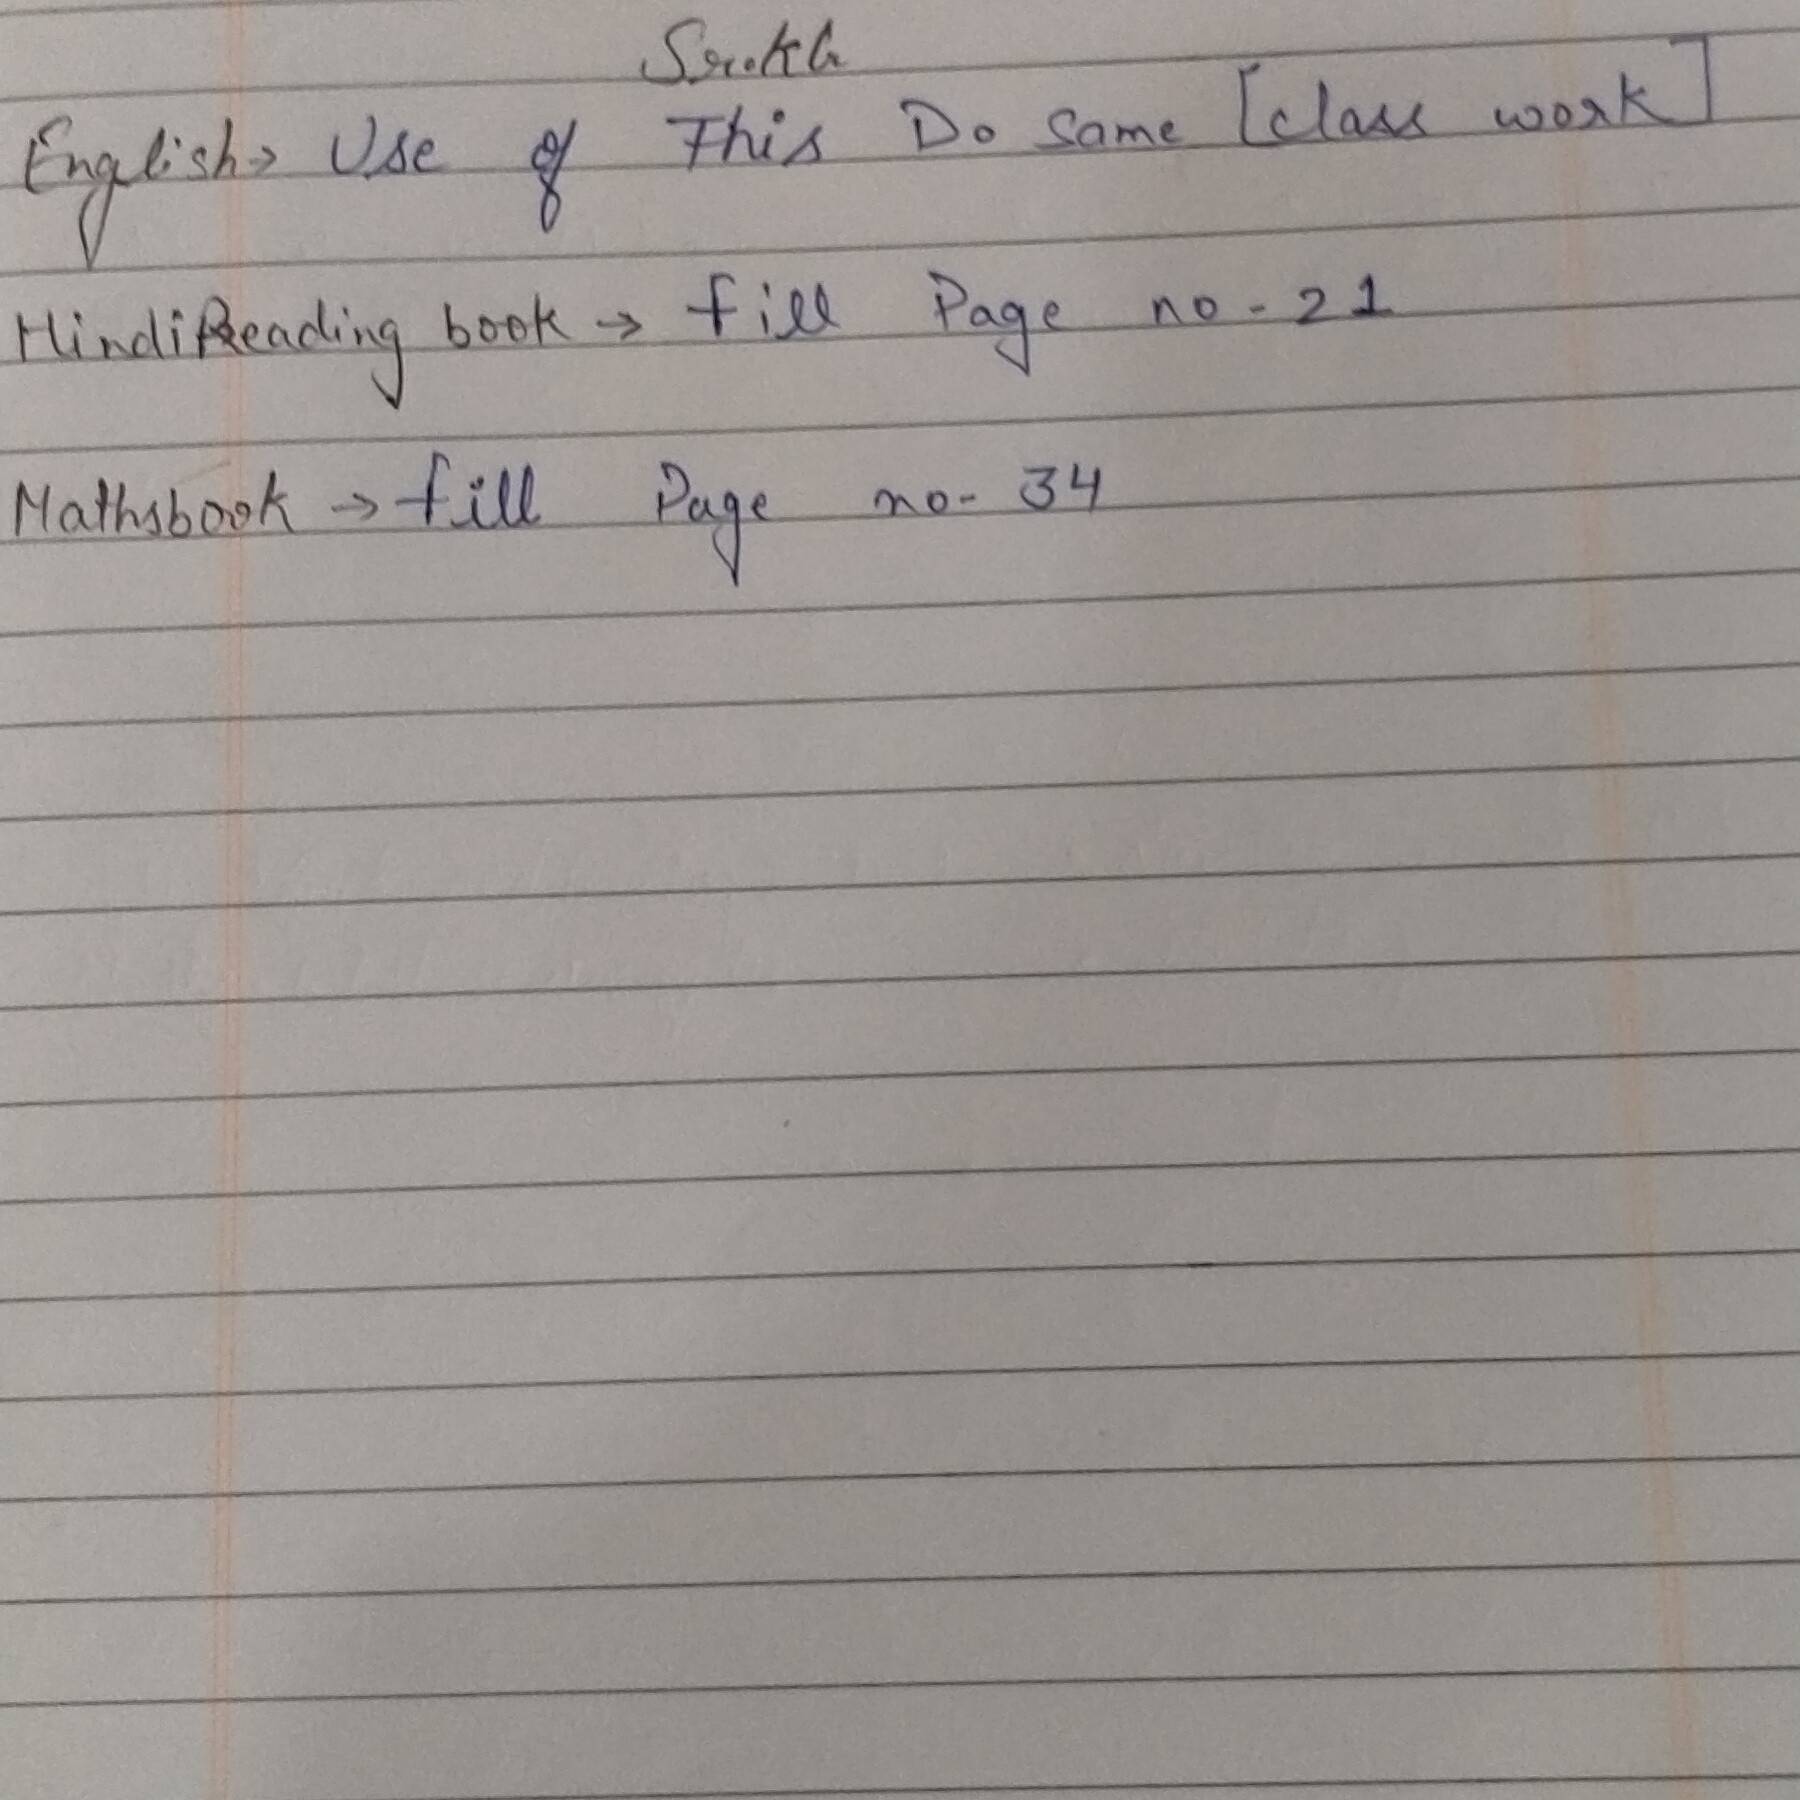 English → Use of This Do Same [class work]
Hindi Reading book → fill Page no - 21
Mathsbook → fill Page no - 34